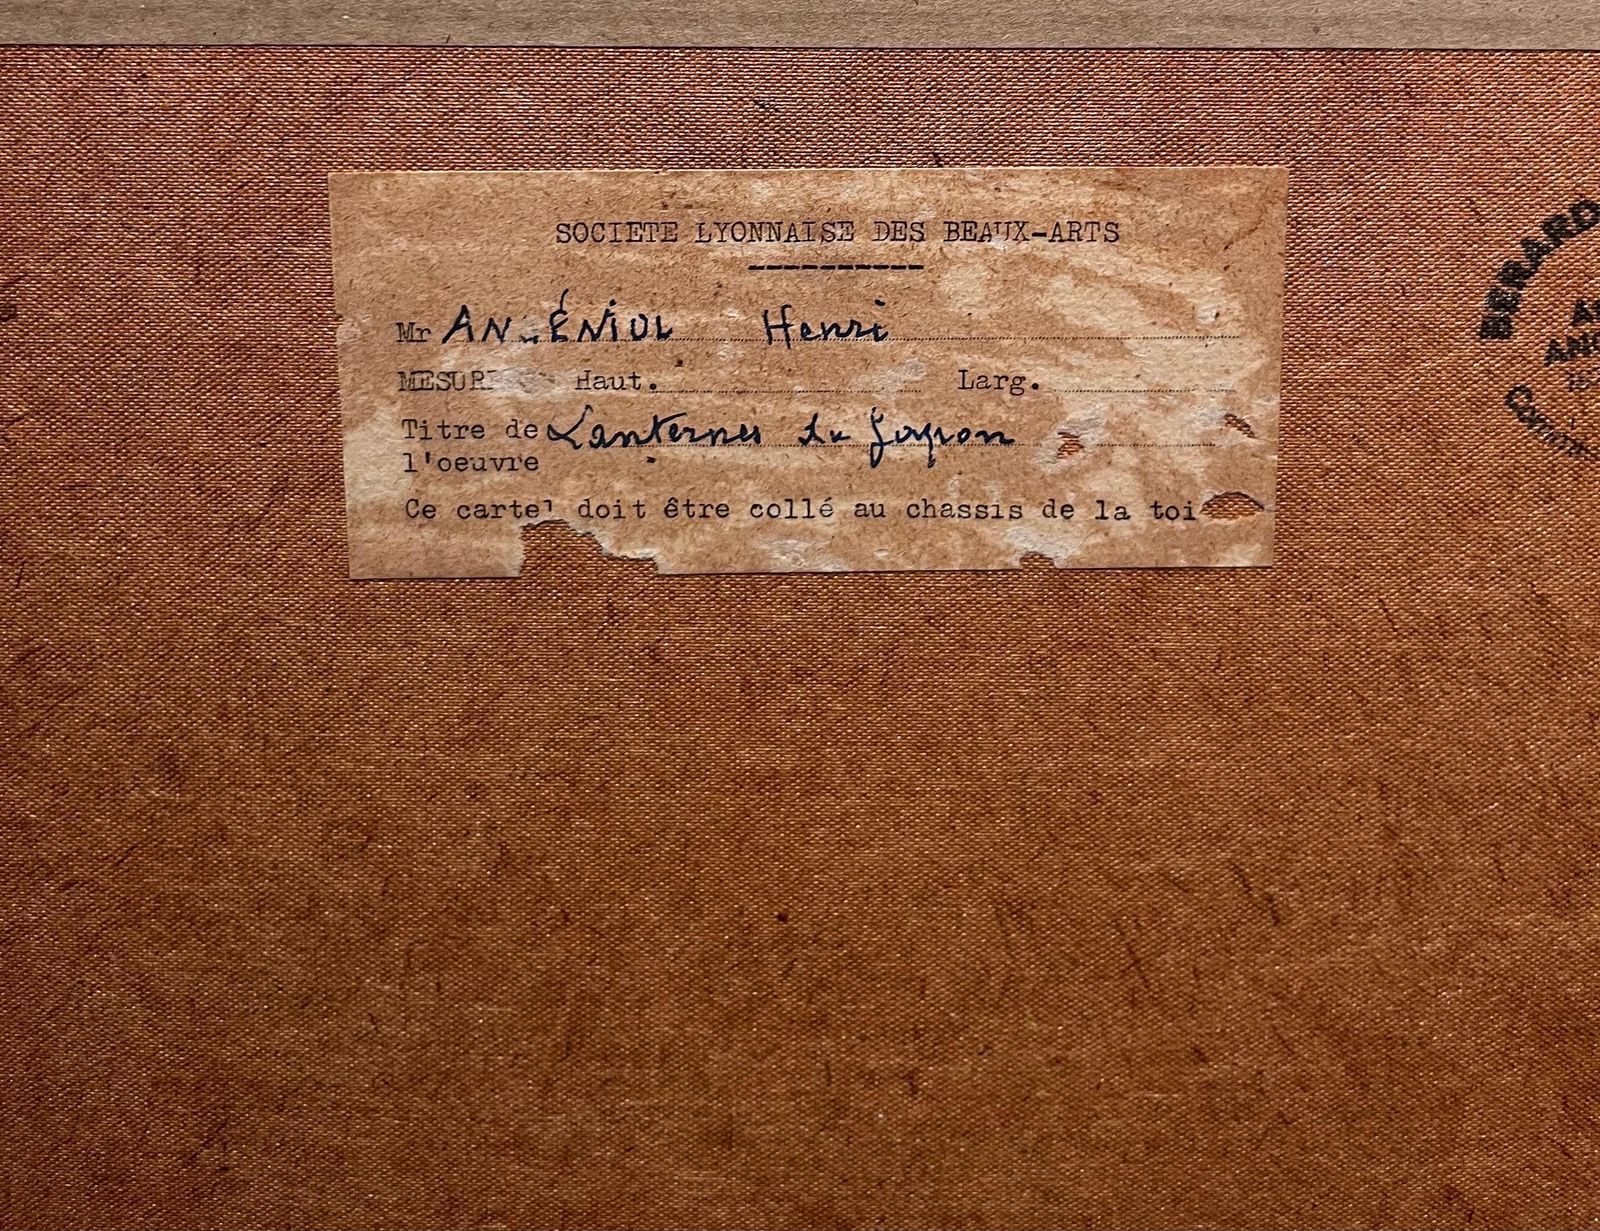 SOCIETE LYONNAISE DES BEAUX-ARTS
Mr ANGÉNIOL Henri
MESURE Haut. Larg.
Titre de Lanternes du Japon
l'oeuvre
Ce cartel doit être collé au chassis de la toi
BERARD